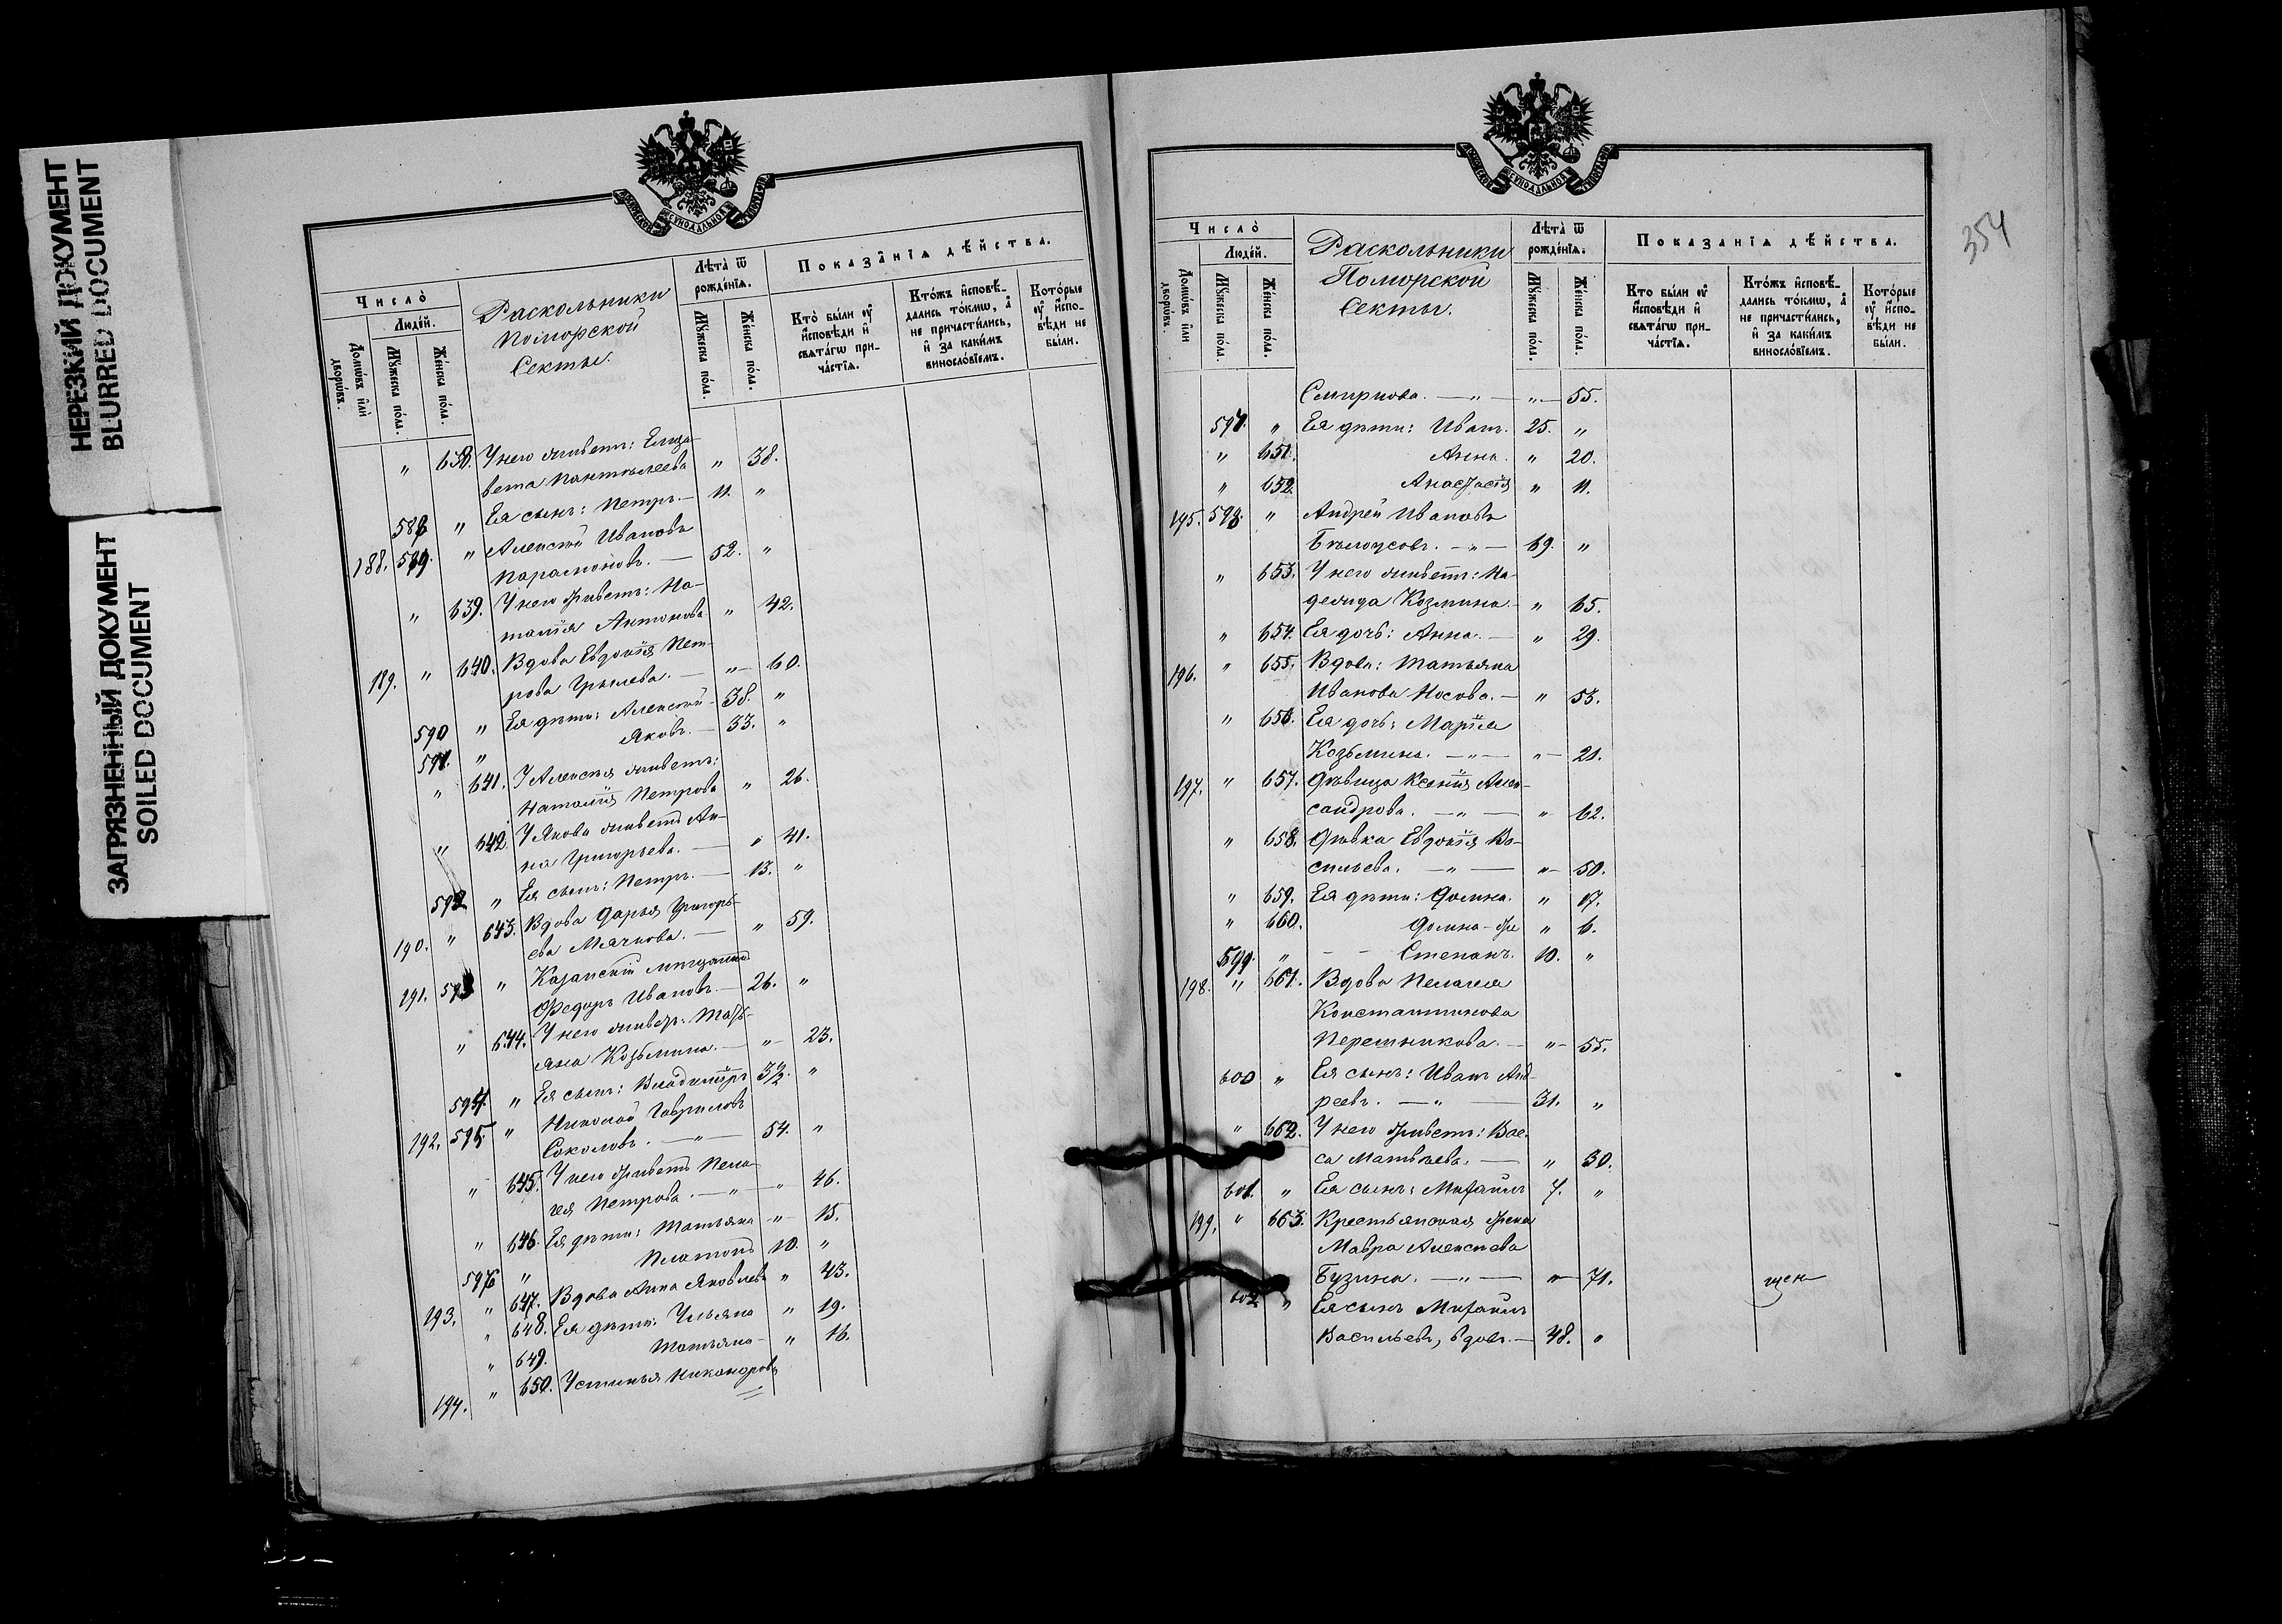 НЕРЕЗКИЙ ДОКУМЕНТ
BLURRED DOCUMENT
ЗАГРЯЗНЕННЫЙ ДОКУМЕНТ
SOILED DOCUMENT
МОСКОВСКОЙ СѴНОДАЛЬНОЙ ТИПОГРАФІИ
Число̀
Людéй.
Домѡ́въ и҆лѝ дворѡ́въ.
Мꙋ́жеска по́ла.
Же́нска по́ла.
Раскольники
Поморской
Секты.
Лѣта̀ ѿ рожде́нїѧ.
Мꙋ́жеска по́ла.
Же́нска по́ла.
Показа̑нїѧ дѣ́йства.
Кто̀ бы́ли оу҆ и҆́сповѣди и҆ свѧта́гѡ прича́стїѧ.
Кто́жъ и҆сповѣ́дались то́кмѡ, а҆ не причасти́лись, и҆ за каки́мъ винословїемъ.
Кото́рые оу҆ и҆́сповѣди не бы́ли.
" 638. У него живетъ: Елиза-
вета Пантелеева " 38.
588 " Ея сынъ: Петръ. — 11. "
188. 589. " Алексѣй Ивановъ
Парамоновъ. — 52. "
" 639. У него живетъ: На-
талія Антонова " 42.
189. " 640. Вдова Евдокія Пет-
рова Грылева. — " — 60.
590 " Ея дѣти: Алексѣй — 38. "
591. " Яковъ. — 33. "
" 641. У Алексѣя живетъ:
Наталія Петрова " 26.
" 642. У Якова живетъ Ан-
на Григорьева. — " 41.
592 " Ея сынъ: Петръ. — 13. "
190. " 643. Вдова Дарья Григорь-
ева Мячкова. — " 59.
191. 593 " Казанскій мѣщанинъ
Ѳедоръ Ивановъ. — 26. "
" 644. У него живетъ: Тать-
яна Козьмина. — " — 23.
594. " Ея сынъ: Владиміръ 3/2. "
192. 595. " Николай Гавриловъ
Соколовъ. — " — 54. "
" 645. У него живетъ Пела-
гея Петрова. — " — " 46.
" 646. Ея дѣти: Татьяна — " — 15.
596 " Платонъ 10. "
193. " 647. Вдова Анна Яковлева " 43.
" 648. Ея дѣти: Ульяна " 19.
" 649. Татьяна — " 16.
194. " 650. Устинья Никанорова
354
МОСКОВСКОЙ СѴНОДАЛЬНОЙ ТИПОГРАФІИ
Число̀
Людéй.
Домѡ́въ и҆лѝ дворѡ́въ.
Мꙋ́жеска по́ла.
Же́нска по́ла.
Раскольники
Поморской
Секты.
Лѣта̀ ѿ рожде́нїѧ.
Мꙋ́жеска по́ла.
Же́нска по́ла.
Показа̑нїѧ дѣ́йства.
Кто̀ бы́ли оу҆ и҆́сповѣди и҆ свѧта́гѡ прича́стїѧ.
Кто́жъ и҆сповѣ́дались то́кмѡ, а҆ не причасти́лись, и҆ за каки́мъ винословїемъ.
Кото́рые оу҆ и҆́сповѣди не бы́ли.
Смирнова. — " — " — 55.
597. " Ея дѣти: Иванъ. 25. "
" 651. Анна. " 20.
" 652. Анастасія " 11.
195. 598. " Андрей Ивановъ
Бѣлоусовъ. — " — 69. "
" 653. У него живетъ: На-
дежда Козмина. — " 65.
" 654. Ея дочь: Анна. — " 29.
196. " 655. Вдова: Татьяна
Иванова Носова. — " 53.
" 656. Ея дочь: Марія
Козьмина. — " — " — 21.
197. " 657. Дѣвица Ксенія Алек-
сандрова. — " — " 62.
" 658. Дѣвка Евдокія Ва-
сильева. — " — " — 50.
" 659. Ея дѣти: Домна. " 17.
" 660. Домна-же " 6.
599. " — — Степанъ. 10. "
198. " 661. Вдова Пелагея
Константинова
Перешникова. — " — 55.
600 " Ея сынъ: Иванъ Анд-
реевъ. — " — 31. "
" 662. У него живетъ: Вас-
са Матвѣева. — " 30.
601. " Ея сынъ: Михаилъ 7. "
199. " 663. Крестьянская жена
Мавра Алексѣева
Бузина. — " — " — 71.
602 " Ея сынъ Михаилъ
Васильевъ, вдовъ. — 48. "